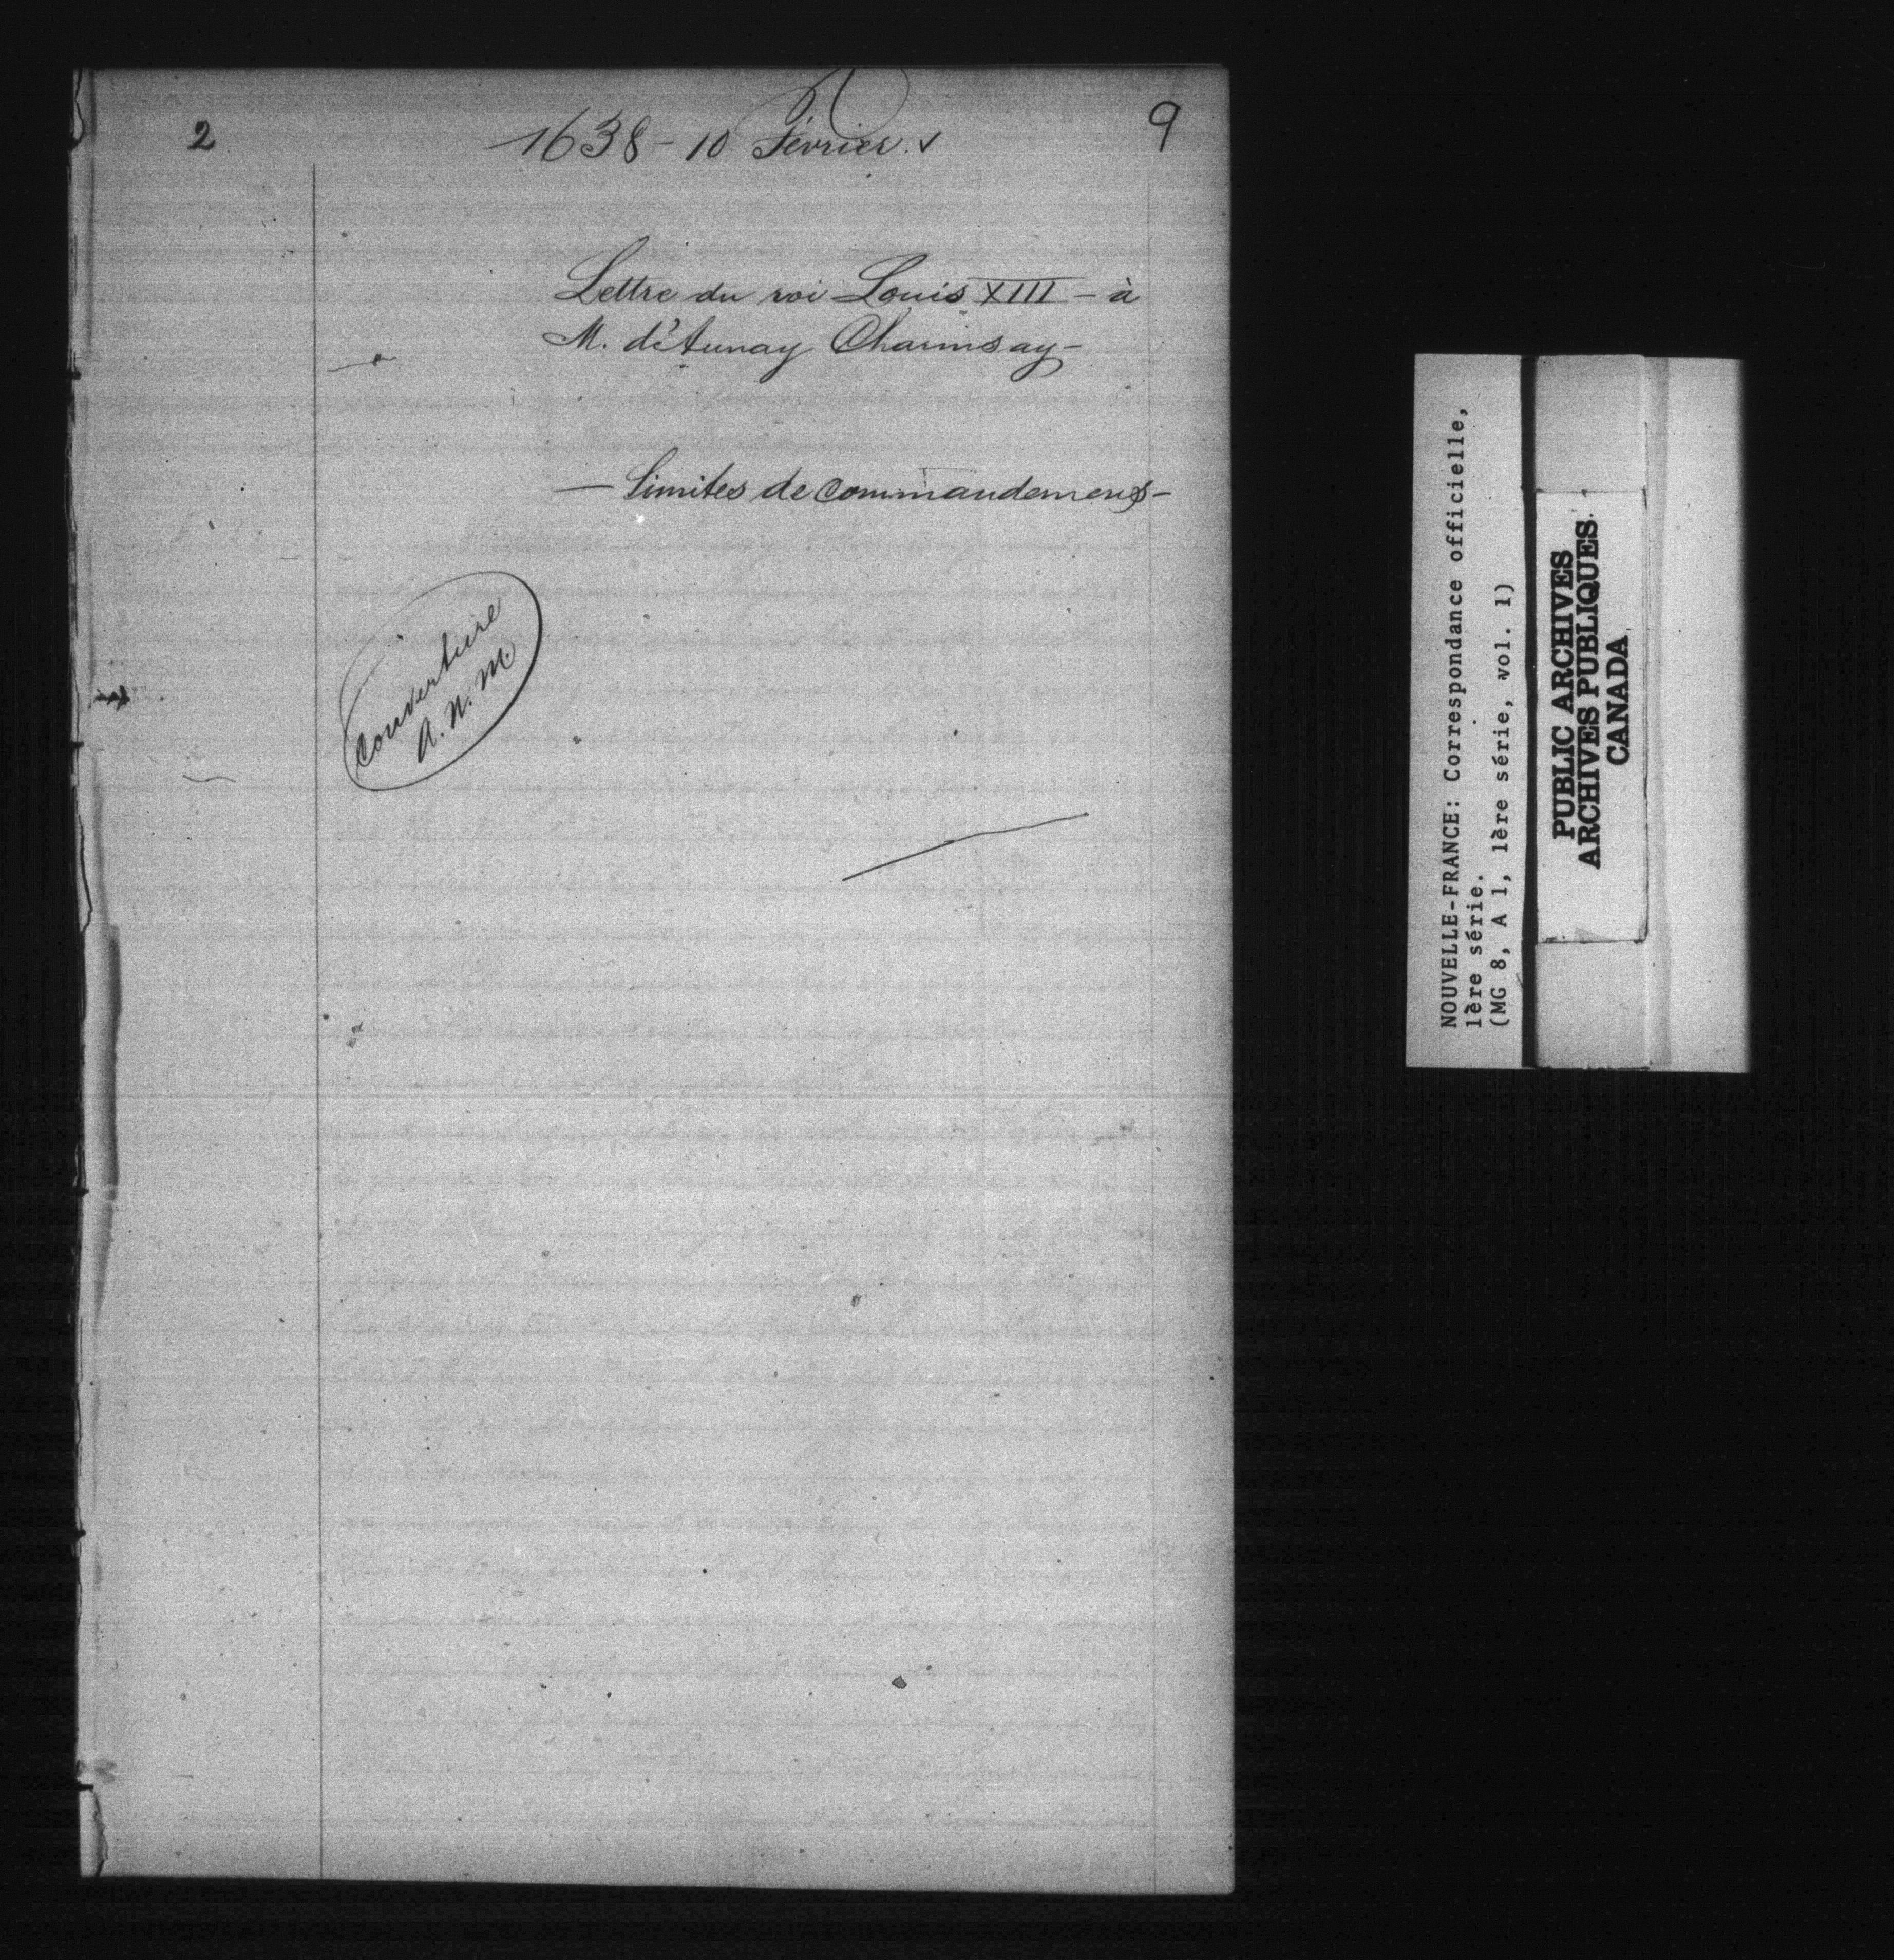 2
1638 - 10 Février. v
9
Lettre du roi Louis XIII - à
M. d'Aunay Charnisay -
- Limites de Commandemens -
Couverture
A. N. M.
NOUVELLE-FRANCE: Correspondance officielle,
1ère série.
(MG 8, A 1, 1ère série, vol. 1)
PUBLIC ARCHIVES
ARCHIVES PUBLIQUES
CANADA